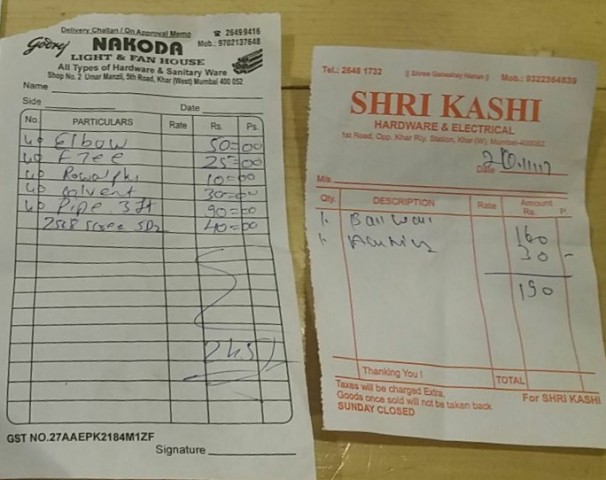 Delivery Challan / On Approval Memo
☎ 26499416
Mob.: 9702137648
Godrej NAKODA
LIGHT & FAN HOUSE
All Types of Hardware & Sanitary Ware
Shop No. 2 Umar Manzil, 5th Road, Khar (West) Mumbai 400 052
Name
Side Date
No. PARTICULARS Rate Rs. Ps.
Elbow 50=00
F Tee 25=00
10=00
Solvent 30=00
Pipe 3 ft 90=00
40=00
245/
GST NO.27AAEPK2184M1ZF
Signature
Tel.: 2648 1732 || Shree Ganeshay Namah || Mob.: 9322364839
SHRI KASHI
HARDWARE & ELECTRICAL
1st Road, Opp. Khar Rly. Station, Khar (W), Mumbai-400052.
Date
M/s.
Qty. DESCRIPTION Rate Amount
Rs. P.
160
30 -
190
Thanking You ! TOTAL
Taxes will be charged Extra. For SHRI KASHI
Goods once sold will not be taken back
SUNDAY CLOSED